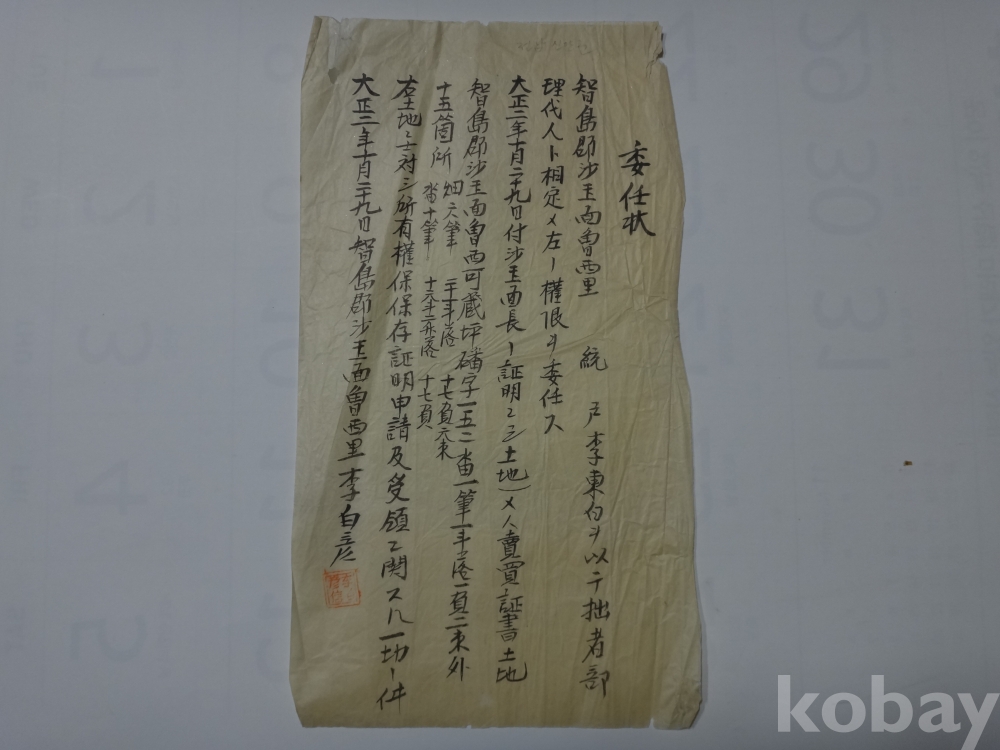 委任状
智島郡沙玉面魯西里 統 戸李東白ヲ以テ拙者部
理代人ト相定メ左ノ權限ヲ委任ス
大正二年十月二十九日付沙玉面長ノ証明 土地 賣買証書土地
智島郡沙玉面魯西可蔵坪磻字一五二畓一筆一斗落一負二束外
十五箇所 畑六筆 二十一斗落 十七負六束
畓十筆 落 十七負
右土地ニ対シ所有權保保存証明申請及受領ニ関スル一切ノ件
大正二年十月二十九日智島郡沙玉面魯西里 李白彦
kobay